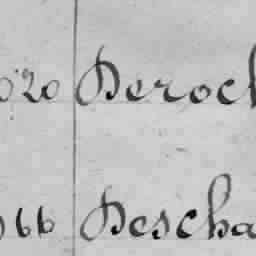 020 Deroch
166 Descha